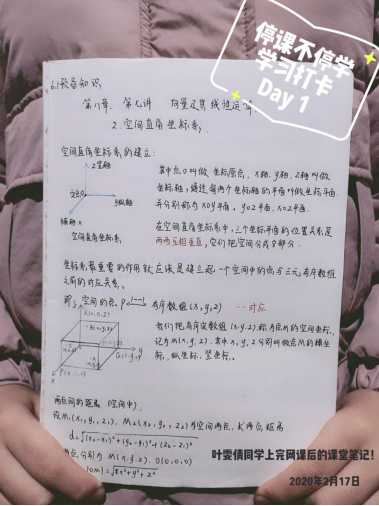 停课不停学
学习打卡
Day 1
第八章 第七讲 向量及其线性运算
2. 空间直角坐标系.
空间直角坐标系的建立:
z竖轴
y纵轴
横轴x
空间直角坐标系
其中点O叫做坐标原点, x轴, y轴, z轴叫做
坐标轴, 通过每两个坐标轴的平面叫做坐标平面.
并分别称为xoy平面, yoz平面, xoz平面.
在空间直角坐标系中, 三个坐标平面的位置关系是
两两互相垂直, 它们把空间分为8部分.
坐标系最重要的作用就应该是建立起一个空间中的点与三元有序数组
之间的对应关系.
即: 空间的点 P 有序数组(x, y, z) 一一对应
我们把有序实数组(x.y.z)称为点M的空间坐标,
记为M(x.y.z). 其中x, y, z分别叫做点M的横坐
标, 纵坐标, 竖坐标.
R(0,0,z)
y
x
两点间的距离 (空间中).
设M₁(x₁, y₁, z₁), M₂(x₂, y₂, z₂)为空间两点, 则两点距离
d=√(x₂-x₁)²+(y₂-y₁)²+(z₂-z₁)²
点, 分别为 M(x.y.z). O(0,0,0)
叶雯倩同学上完网课后的课堂笔记!
2020年2月17日